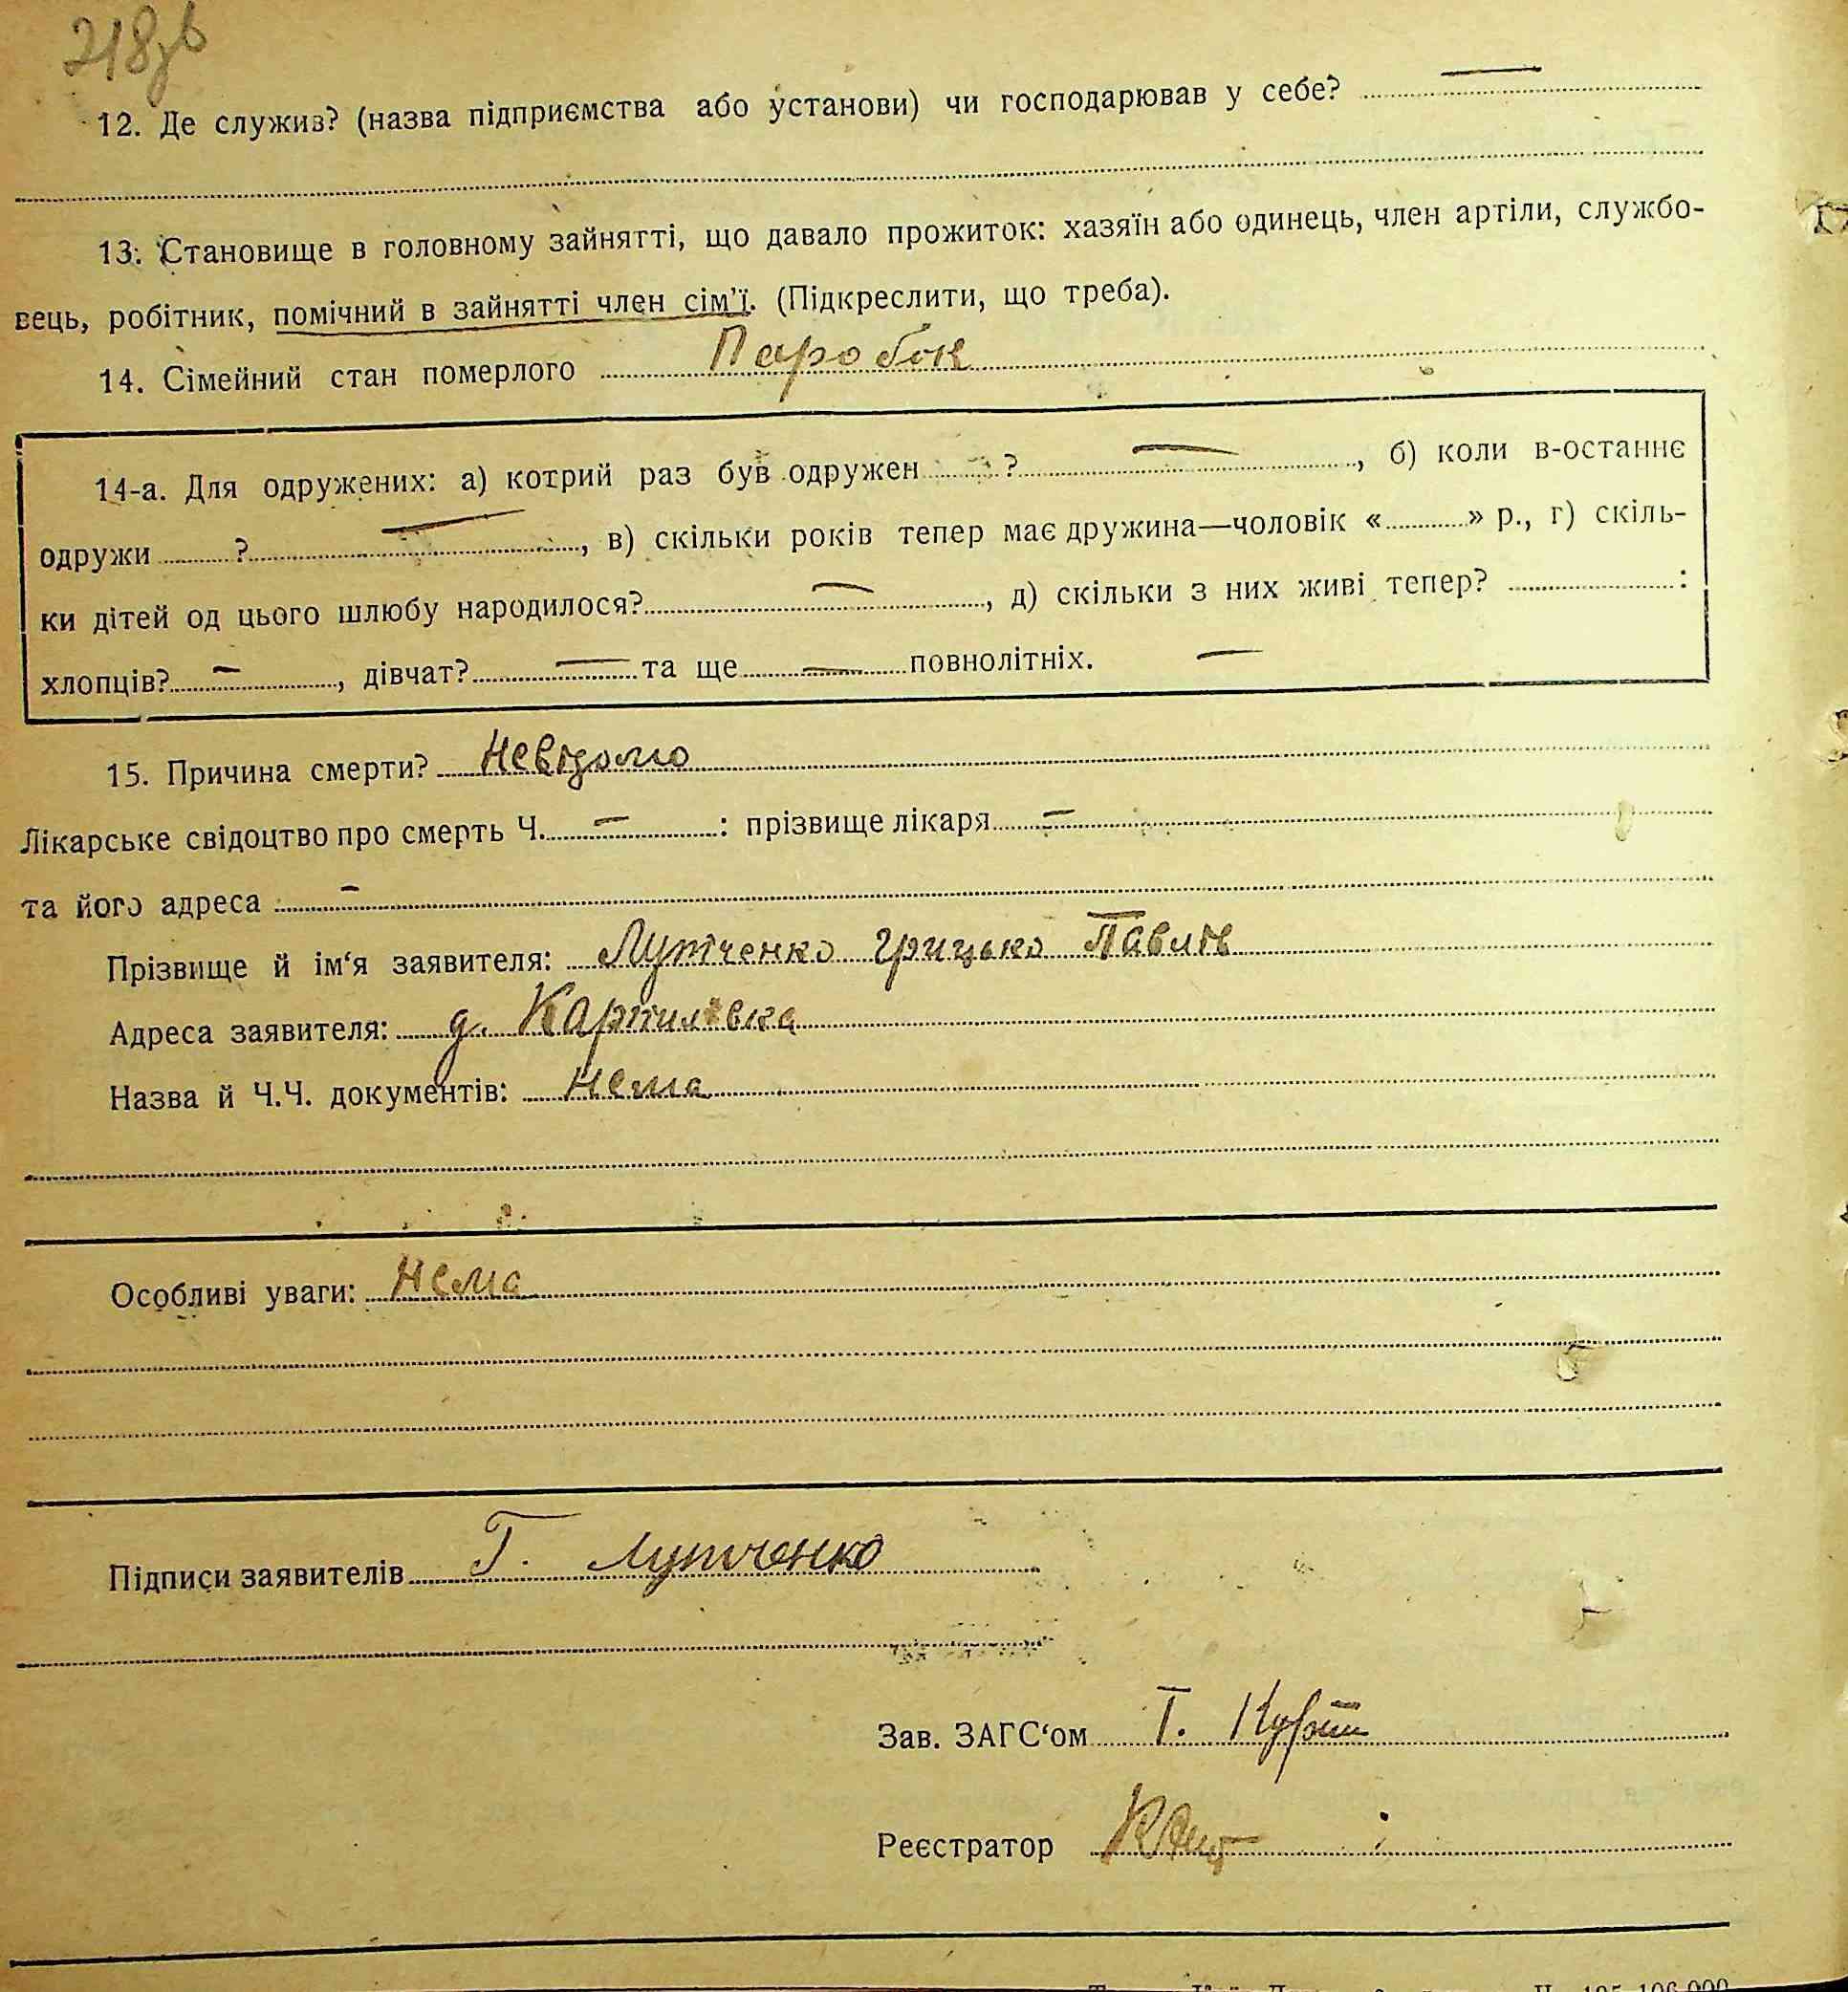 218зв
12. Де служив? (назва підприємства або установи) чи господарював у себе? —
13. Становище в головному зайнятті, що давало прожиток: хазяїн або одинець, член артіли, службо-
вець, робітник, помічний в зайнятті член сім'ї. (Підкреслити, що треба).
14. Сімейний стан померлого Паробок
14-а. Для одружених: а) котрий раз був одружен ? —, б) коли в-останнє
одружи ? —, в) скільки років тепер має дружина—чоловік « » р., г) скіль-
ки дітей од цього шлюбу народилося? —, д) скільки з них живі тепер? :
хлопців? —, дівчат? — та ще — повнолітніх. —
15. Причина смерти? Невідомо
Лікарське свідоцтво про смерть Ч. — : прізвище лікаря —
та його адреса —
Прізвище й ім'я заявителя: Лутченко Грицько Павлів
Адреса заявителя: д. Картилівка
Назва й Ч.Ч. документів: Нема
Особливі уваги: Нема
Підписи заявителів Г. Лутченко
Зав. ЗАГС'ом Т.
Реєстратор